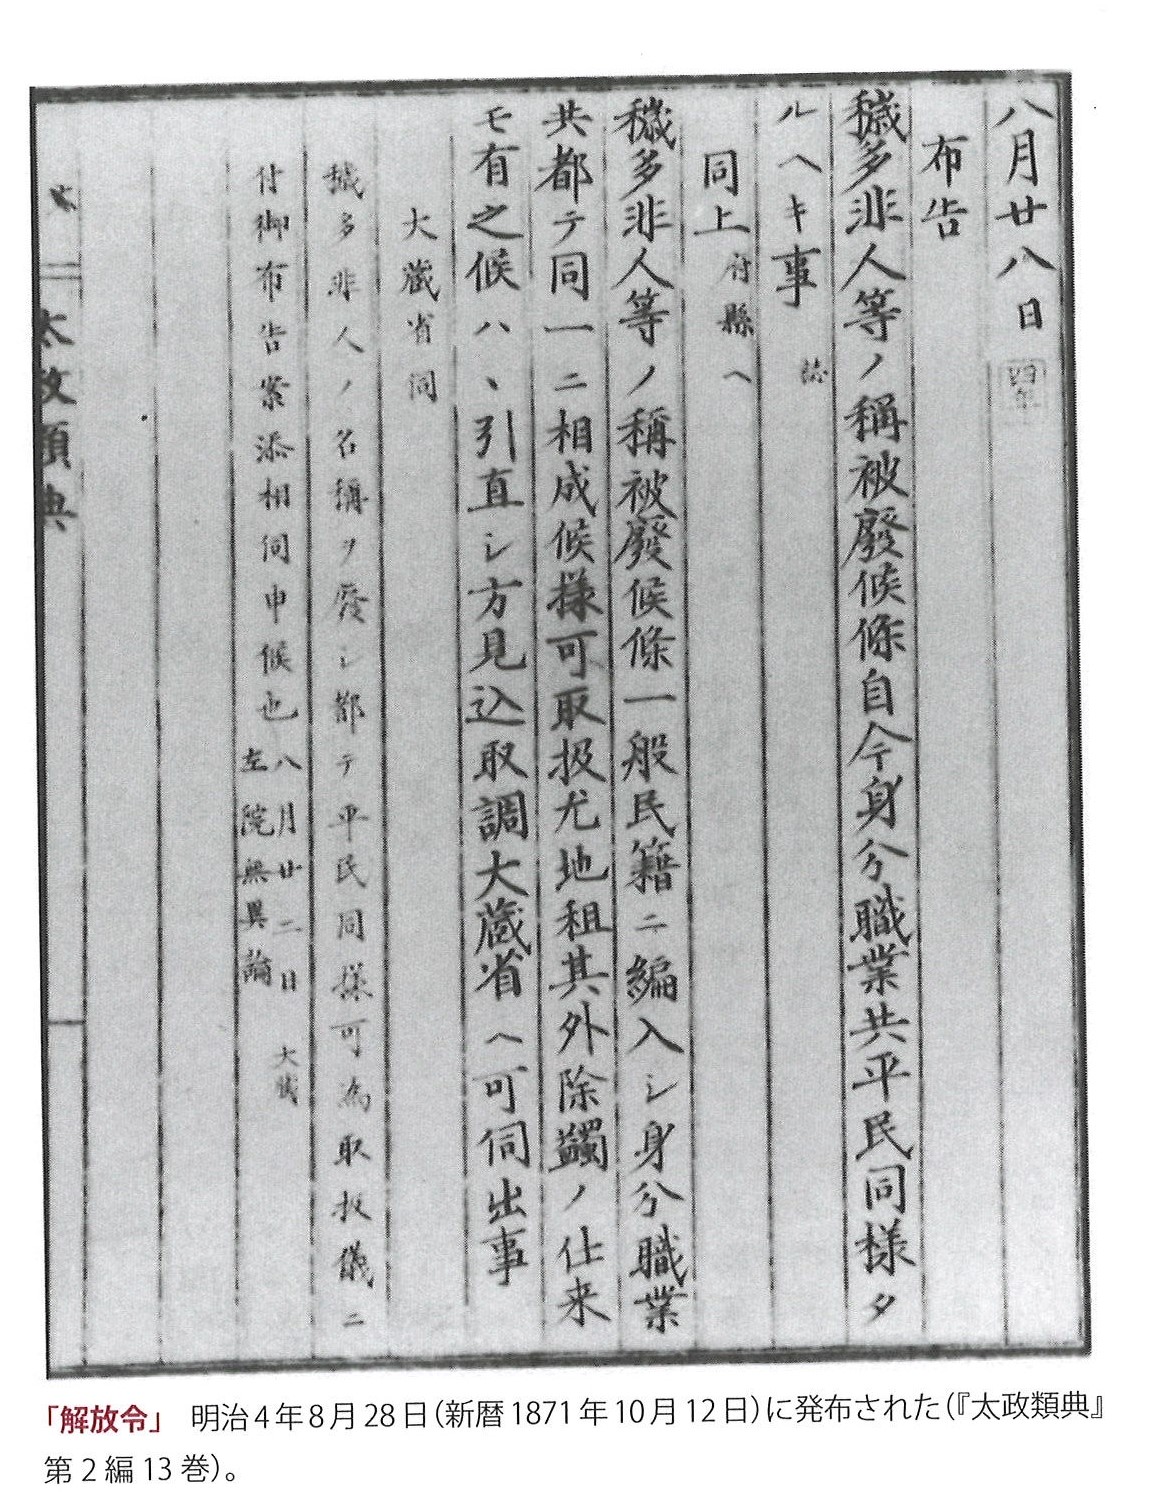 八月廿八日 四年
布告
穢多非人等ノ稱被廢候條自今身分職業共平民同様タ
ルヘキ事
同上 府縣ヘ
穢多非人等ノ稱被廢候條一般民籍ニ編入シ身分職業
共都テ同一ニ相成候様可取扱尤地租其外除蠲ノ仕来
モ有之候ハヽ引直シ方見込取調大蔵省ヘ可伺出事
大蔵省伺
穢多非人ノ名稱ヲ廢シ都テ平民同様可為取扱儀ニ
付御布告案添相伺申候也 八月廿二日 大蔵
左院無異論
太政類典
「解放令」 明治4年8月28日(新暦1871年10月12日)に発布された(『太政類典』
第2編13巻)。